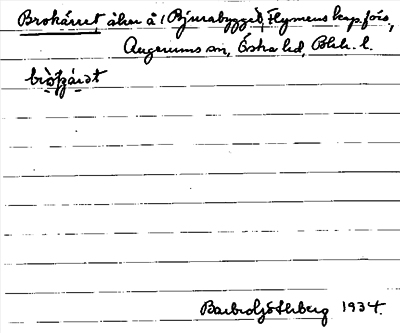 Brokärret, åker å 1 Bjurabygget, Flymens kap.förs.,
Augerums sn, Östra hd, Blek. l.
Barbro Söderberg 1934.